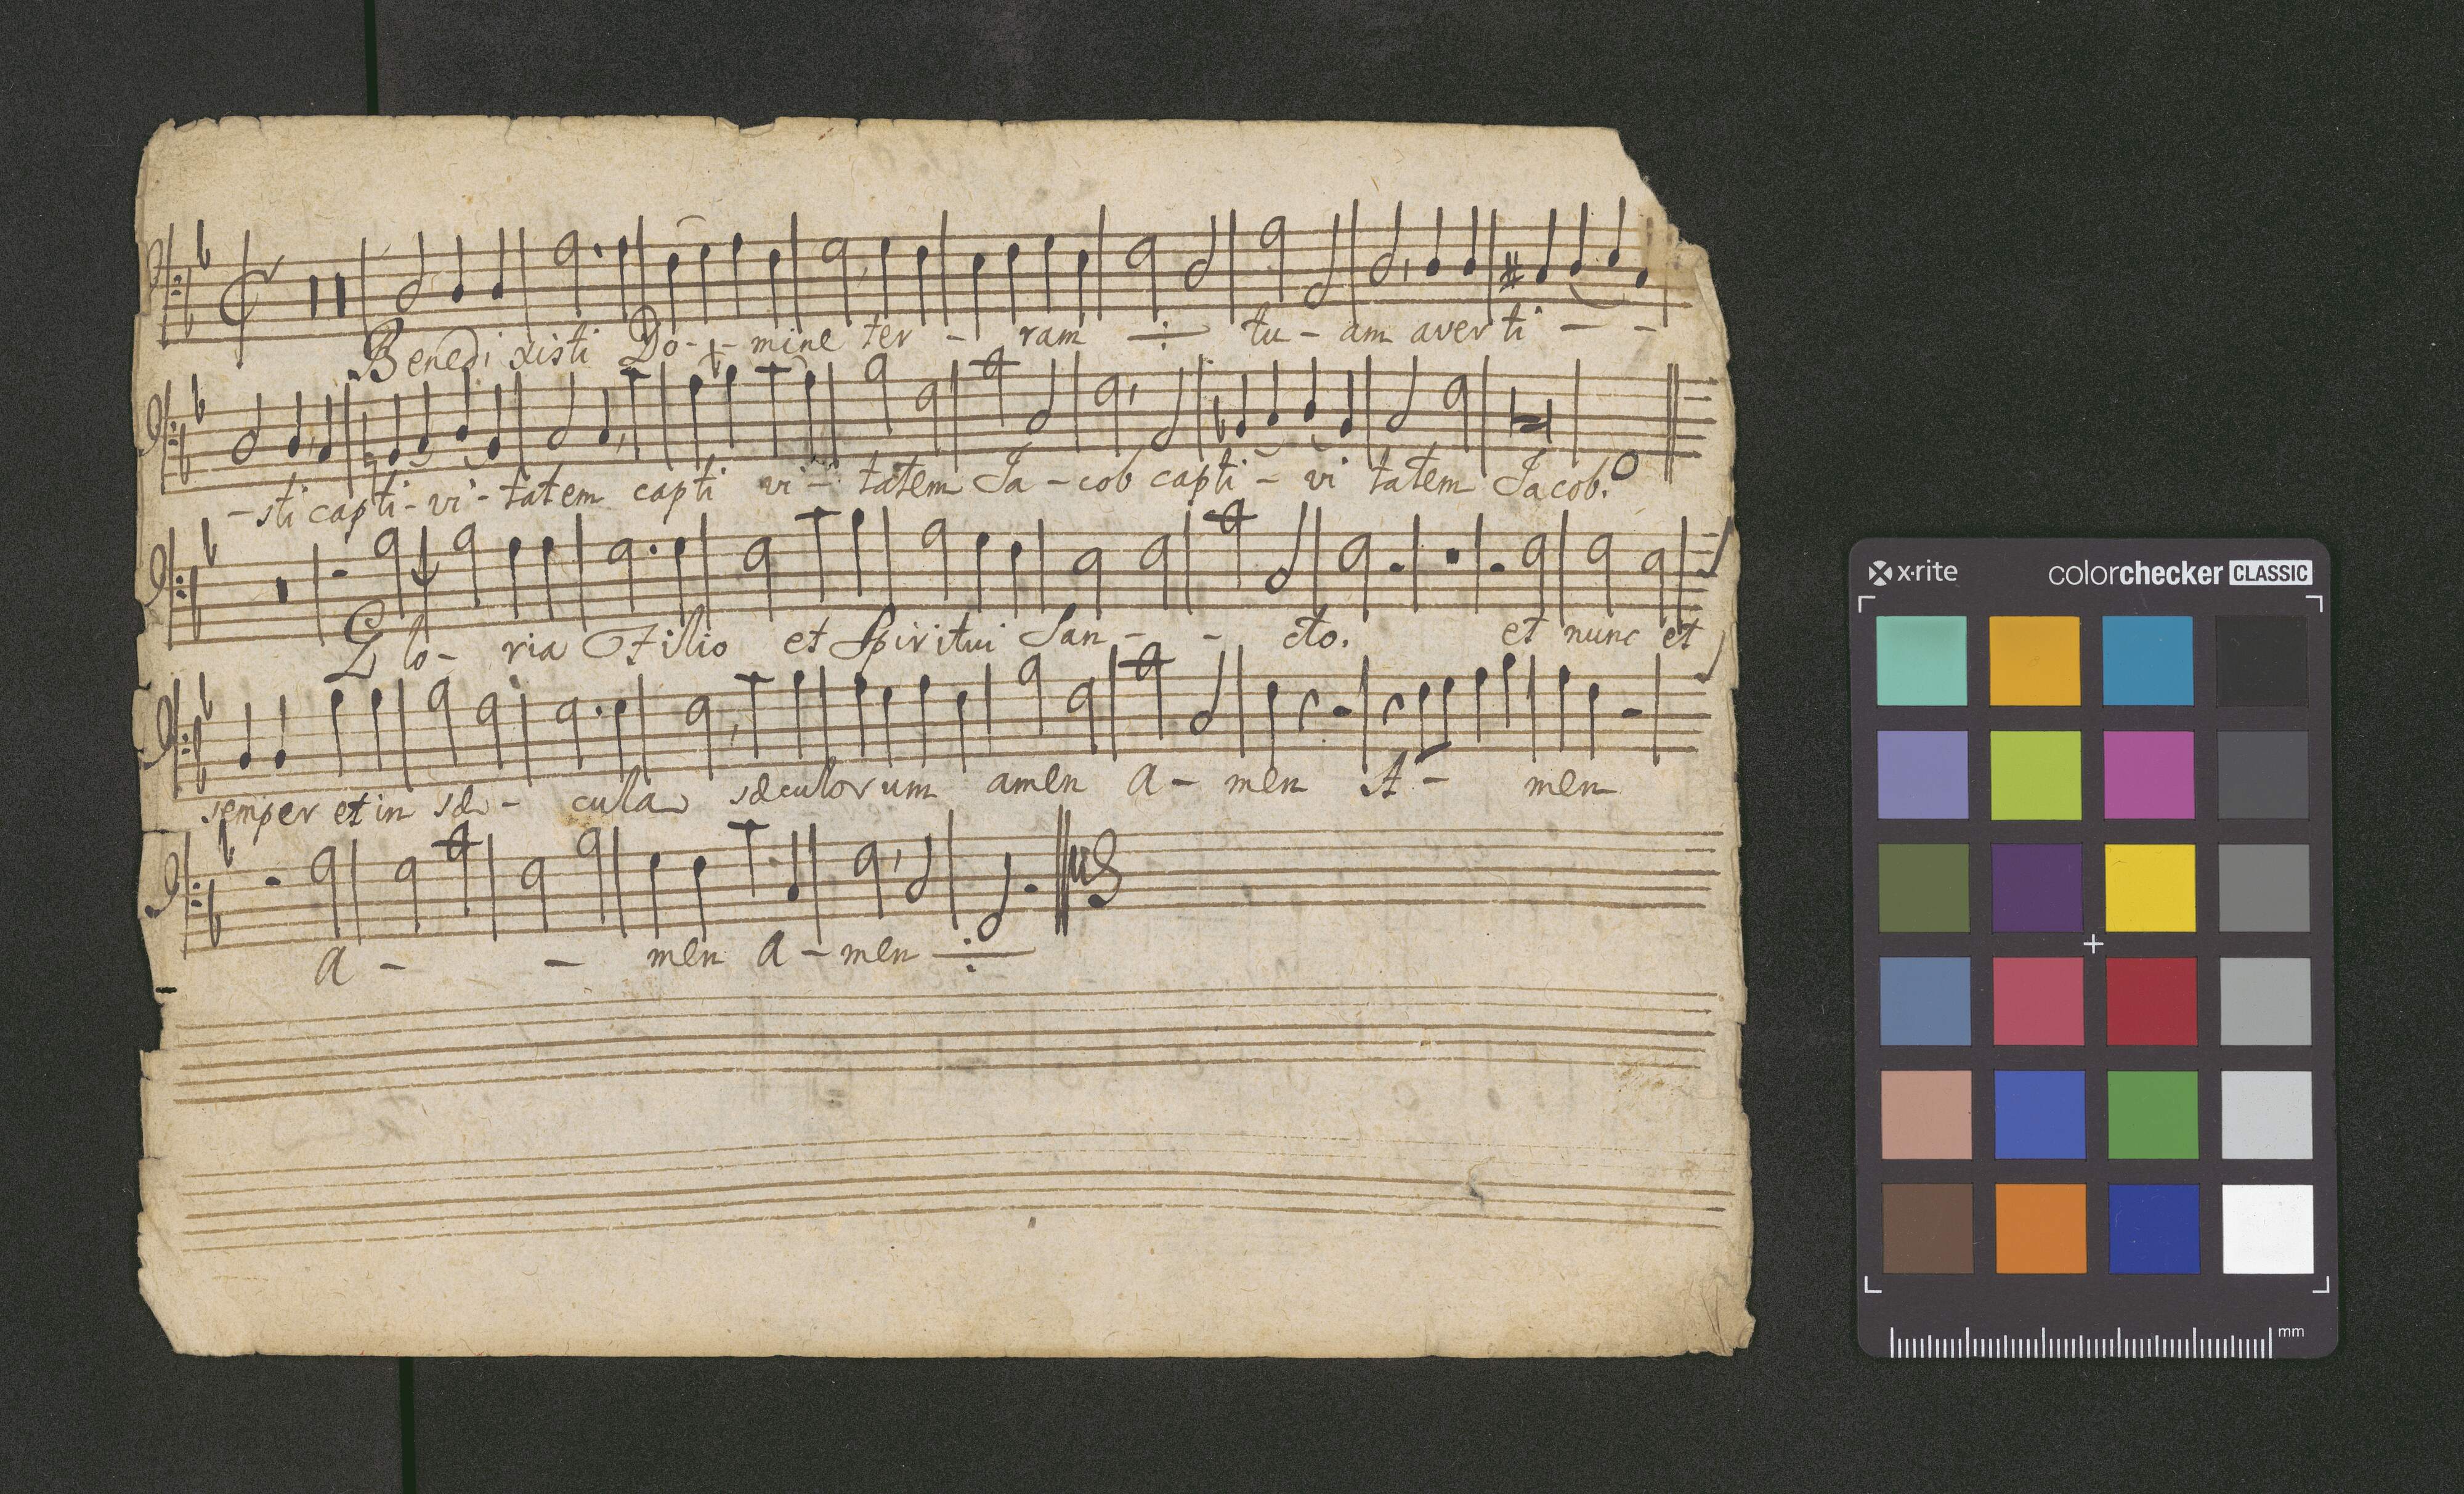 Benedi xisti Do - - mine ter - ram ÷ tu - am aver ti - -
- sti capti - vi - tatem capti vi - tatem Ja - cob capti - vi tatem Jacob.
Glo - ria Filio et Spiritui San - - cto. et nunc et
semper et in sæ - cula sæculorum amen a - men A - men
a - - men a - men ÷
x·rite colorchecker CLASSIC
mm